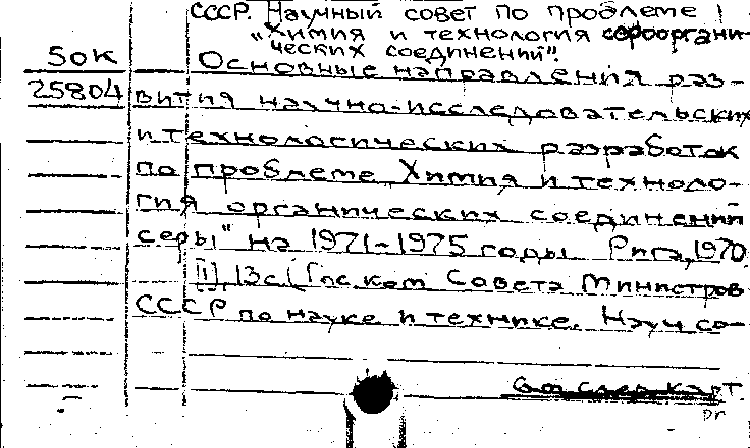 СССР. Научный совет по проблеме
"Химия и технология серооргани-
ческих соединений".
50к Основные направления раз-
25804 вития научно-исследовательских
и технологических разработок
по проблеме "Химия и техноло-
гия органических соединений
серы" на 1971-1975 годы Рига, 1970
[1], 13с. (Гос. ком. Совета Министров
СССР по науке и технике. Науч. со-
См след карт.